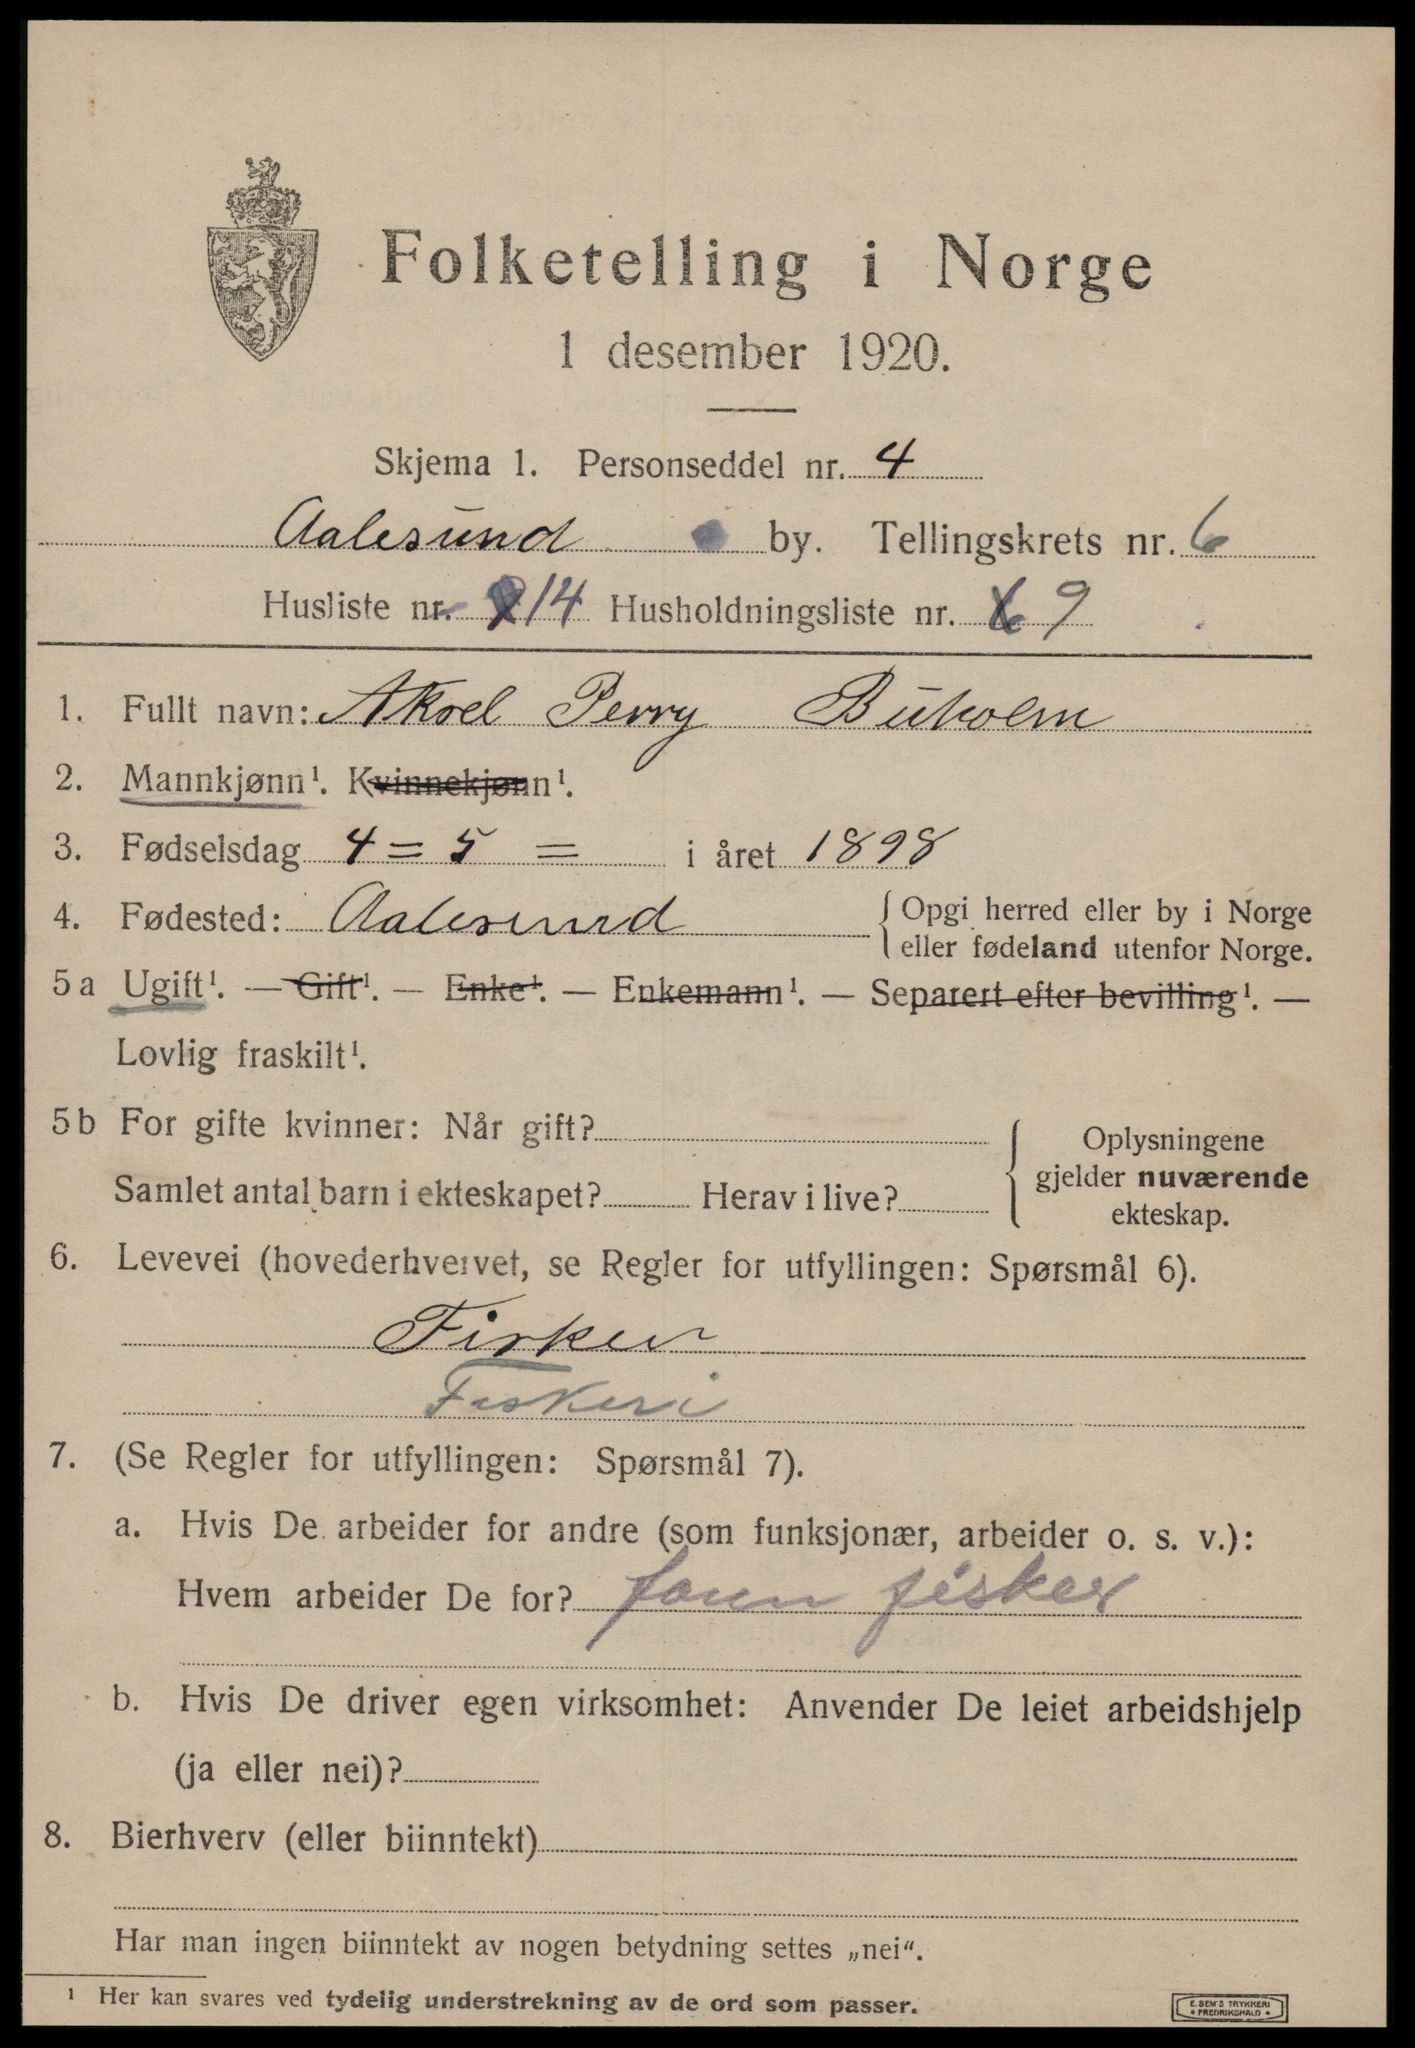 Folketelling i Norge
1 desember 1920.
Skjema 1. Personseddel nr. 4
Aalesund by. Tellingskrets nr. 6
Husliste nr. 14 Husholdningsliste nr. 9
1. Fullt navn: Aksel Perry Buholm
2. Mannkjønn¹. Kvinnekjønn¹.
3. Fødselsdag 4 = 5 = i året 1898
4. Fødested: Aalesund { Opgi herred eller by i Norge
eller fødeland utenfor Norge.
5a Ugift¹. — Gift¹. — Enke¹. — Enkemann¹. — Separert efter bevilling¹. —
Lovlig fraskilt¹.
5b For gifte kvinner: Når gift?
Samlet antal barn i ekteskapet? Herav i live?
{ Oplysningene
gjelder nuværende
ekteskap.
6. Levevei (hovederhvervet, se Regler for utfyllingen: Spørsmål 6).
Fisker
Fiskeri
7. (Se Regler for utfyllingen: Spørsmål 7).
a. Hvis De arbeider for andre (som funksjonær, arbeider o. s. v.):
Hvem arbeider De for? fisker
b. Hvis De driver egen virksomhet: Anvender De leiet arbeidshjelp
(ja eller nei)?
8. Bierhverv (eller biinntekt)
Har man ingen biinntekt av nogen betydning settes „nei“.
¹ Her kan svares ved tydelig understrekning av de ord som passer.
E. SEM'S TRYKKERI
• FREDRIKSHALD •